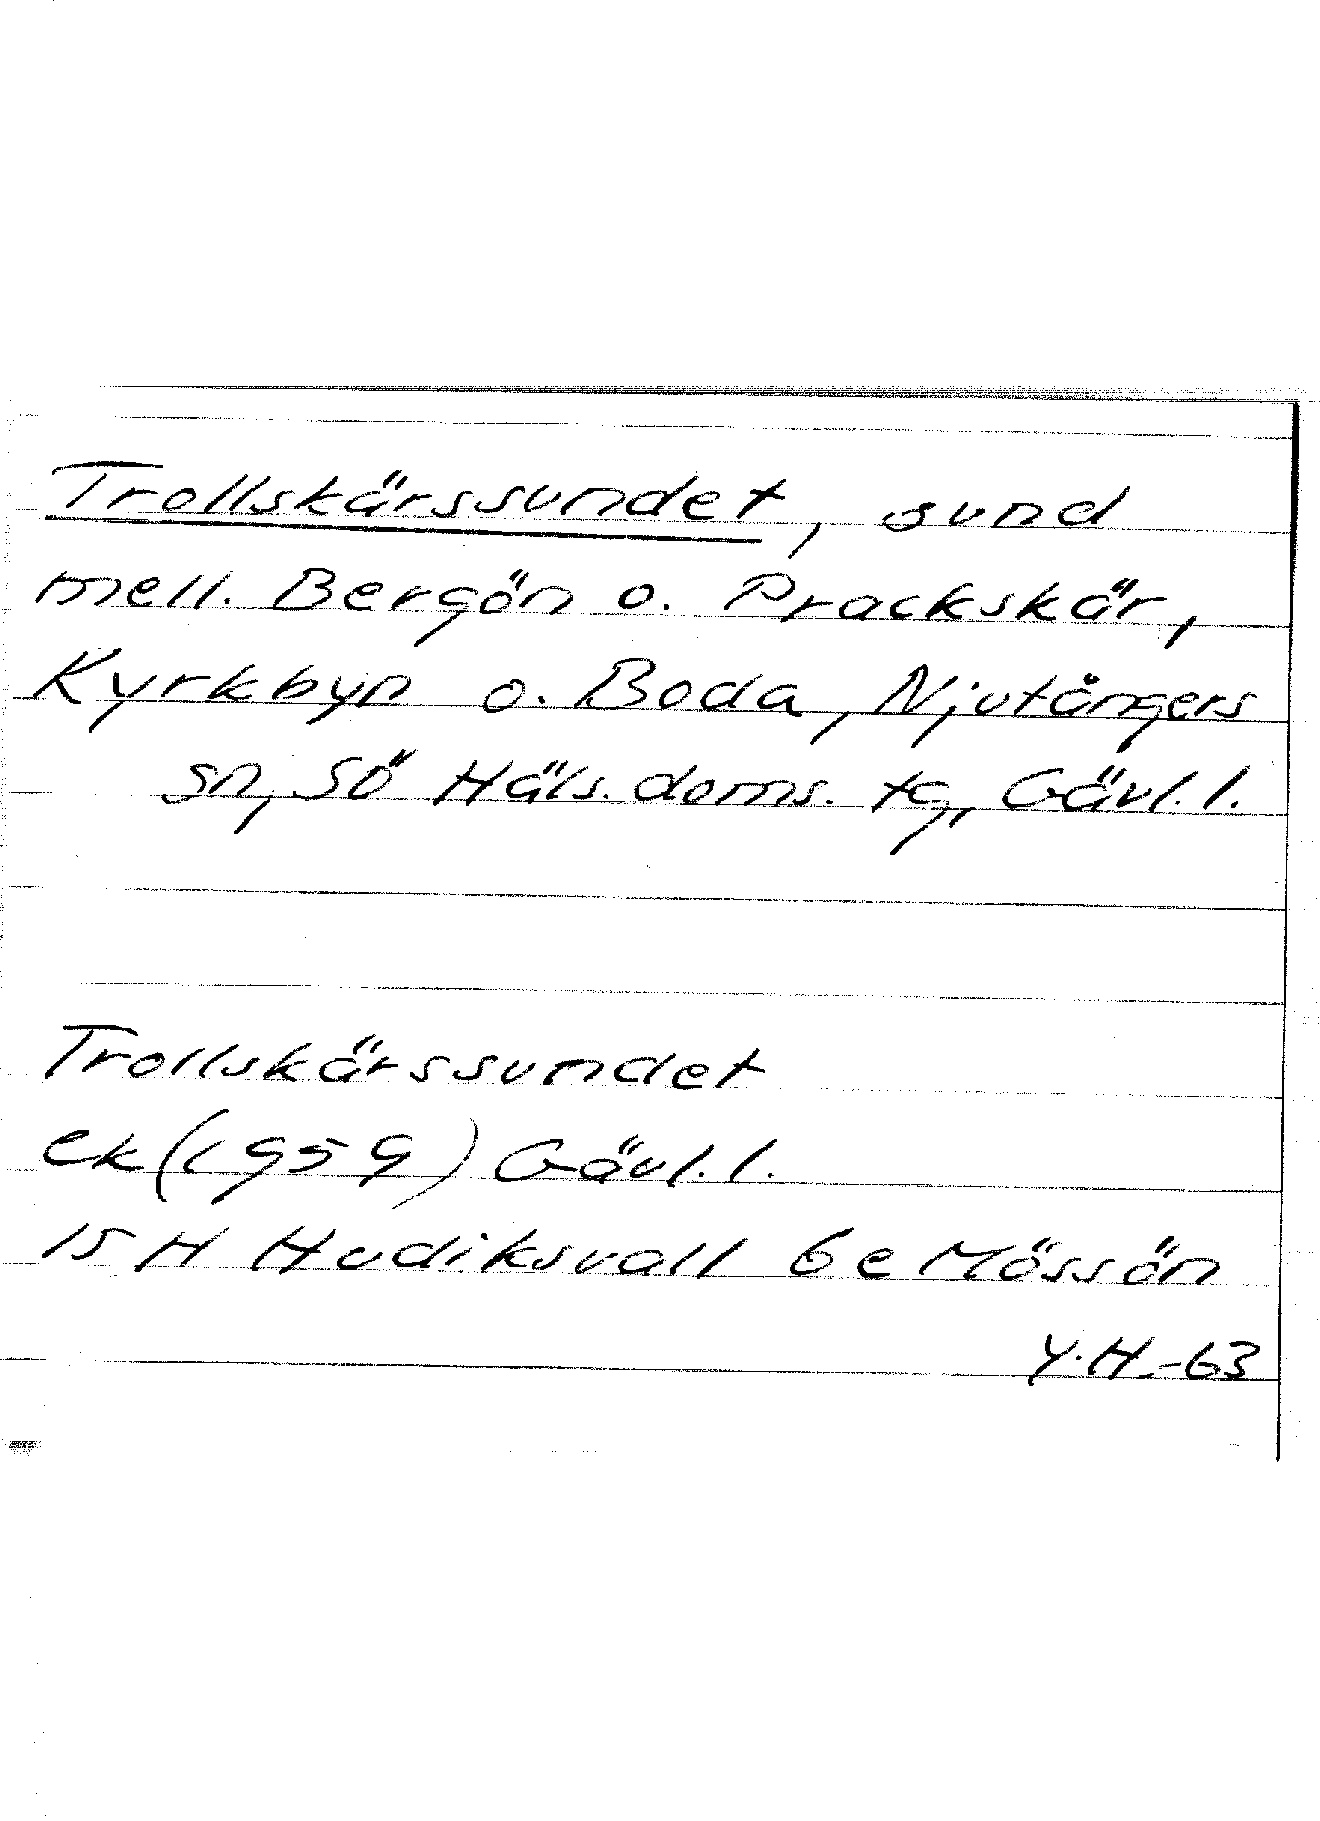 Trollskärssundet, sund
mell. Bergön o. Prackskär,
Kyrkbyn o. Boda, Njutångers
sn, Sö Häls. doms. tg, Gävl. l.
Trollskärssundet
ek (1959) Gävl. l.
15 H Hudiksvall 6e Mössön
Y.H.-63